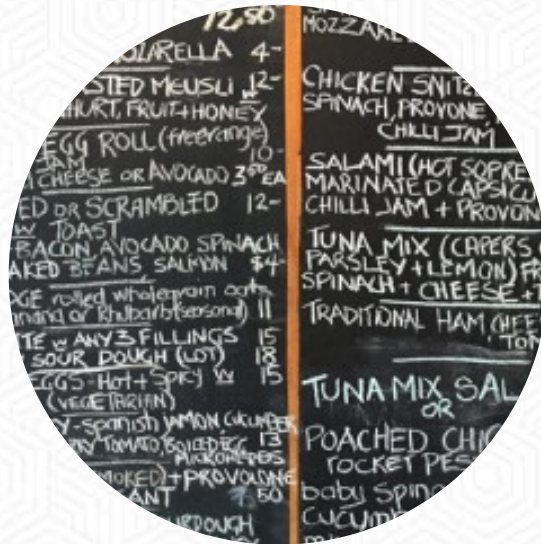 12,50
OZARELLA 4-
STED MEUSLI W 12-
HURT, FRUIT+HONEY
EGG ROLL (freerange)
JAM 10-
CHEESE OR AVOCADO 3.50 EA
ED OR SCRAMBLED 12-
W TOAST
BACON AVOCADO SPINACH
AKED BEANS SALMON $4-
GE rolled wholegrain oats
nana or Rhubarb (seasonal) 11
TE W ANY 3 FILLINGS 15
SOUR DOUGH (LOT) 18
EGGS-HOT+SPICY W 15
(VEGETARIAN)
Y-Spanish JAMON, CUCUMBER
RY TOMATO, BOILED EGG 13
MICROHERBS
MOKED) + PROVOLONE
ANT 50
URDOUGH
MOZZARE
CHICKEN SNITZ
SPINACH, PROVONE,
CHILLI JAM
SALAMI (HOT SOPRE
MARINATED CAPSICU
CHILLI JAM + PROVON
TUNA MIX (CAPERS
PARSLEY + LEMON) FR
SPINACH + CHEESE +T
TRADITIONAL HAM, CHEE
TOM
TUNA MIX SAL
OR
POACHED CHIC
ROCKET PES
baby Spina
CUCUM